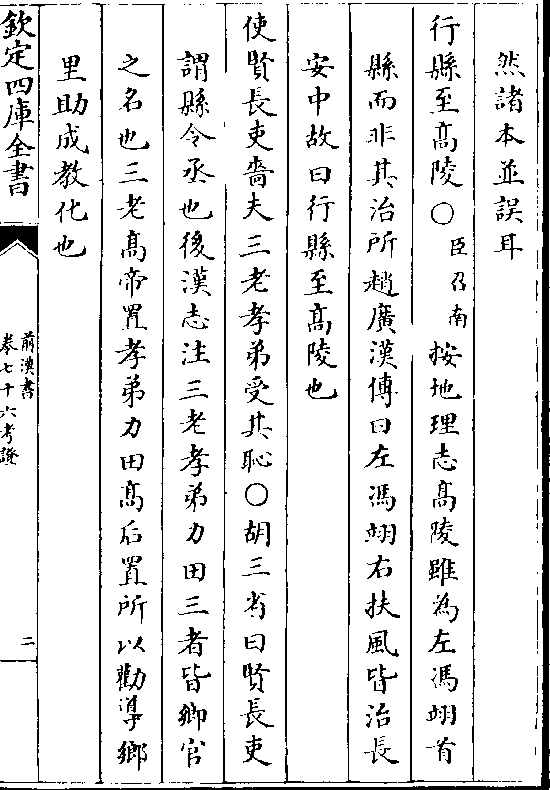 然諸本並誤耳
行縣至髙陵○臣召南按地理志髙陵雖為左馮翊首
縣而非其治所趙廣漢傳曰左馮翊右扶風皆治長
安中故曰行縣至髙陵也
使賢長吏嗇夫三老孝弟受其恥○胡三省曰賢長吏
謂縣令丞也後漢志注三老孝弟力田三者皆鄉官
之名也三老髙帝置孝弟力田髙后置所以勸導鄉
里助成教化也
欽定四庫全書
前漢書
卷七十六考證
二